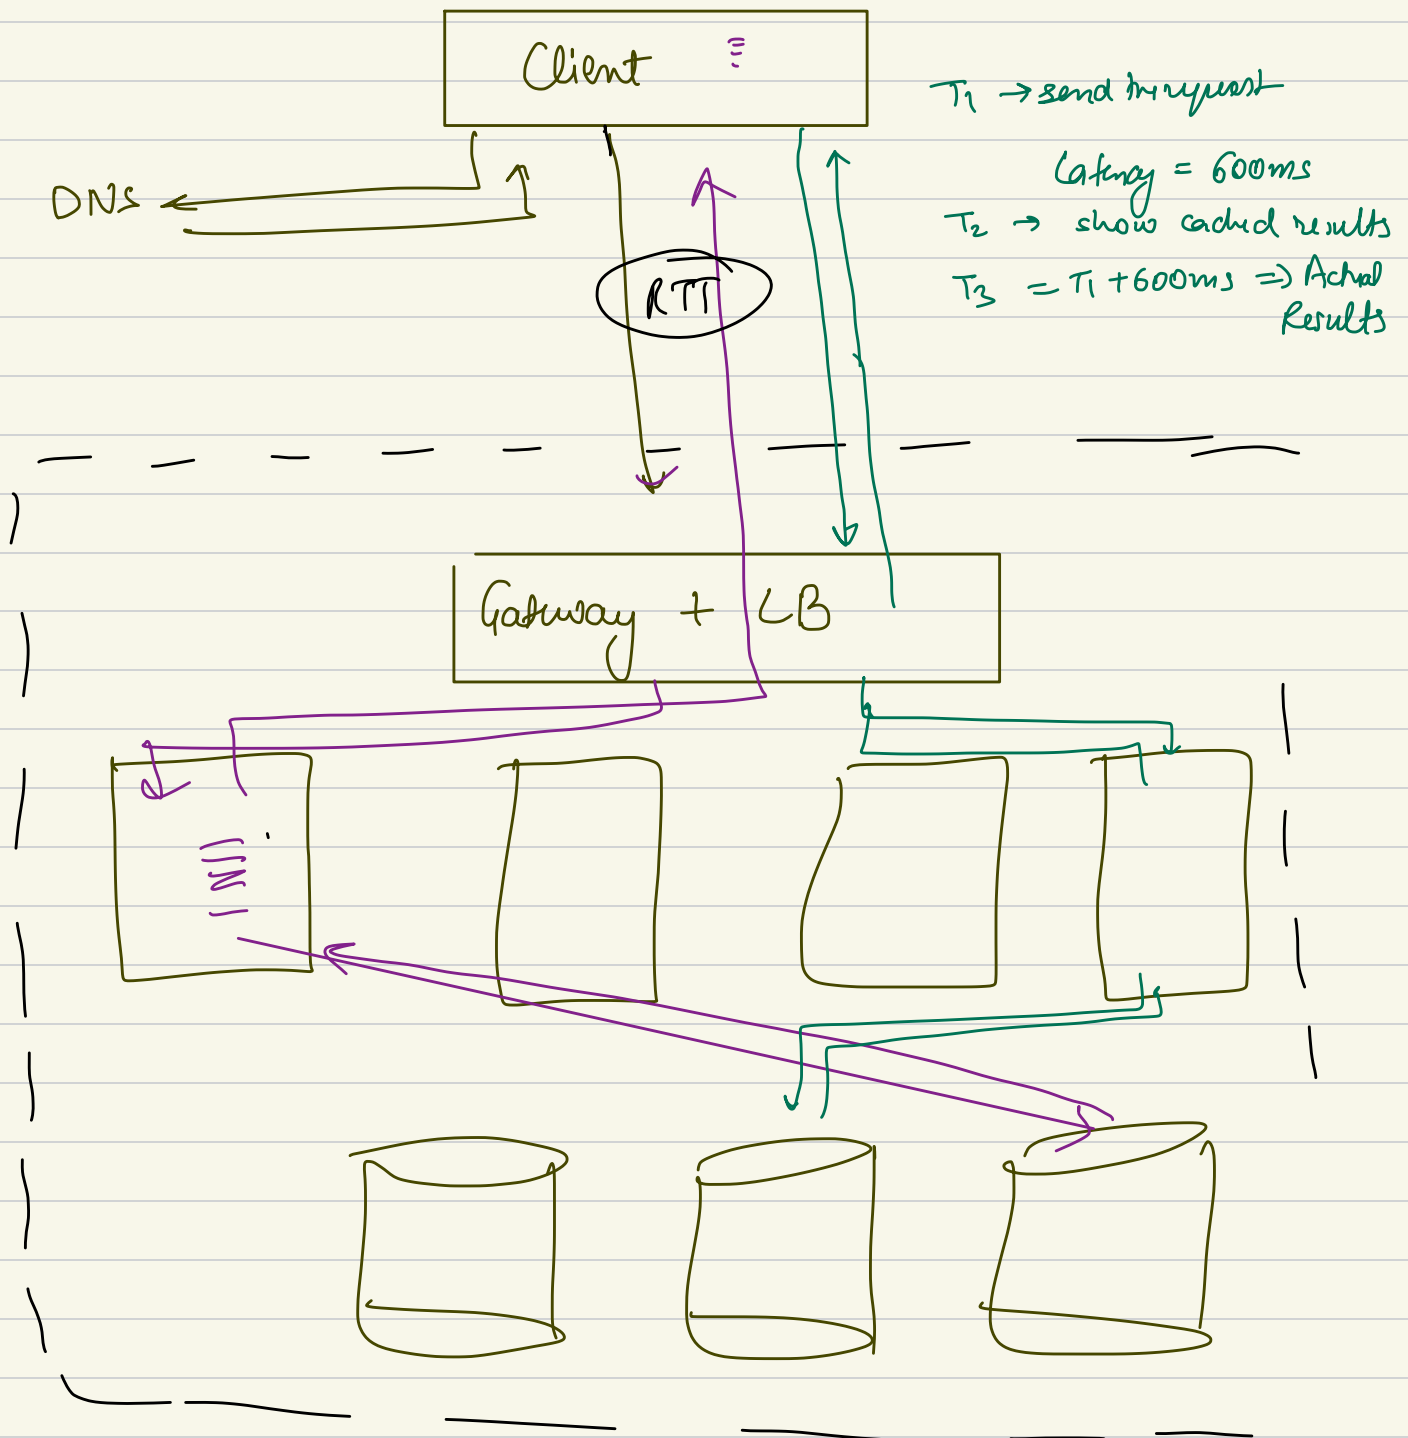 Client
T1 → send the request
Latency = 600ms
DNS
T2 → show cached results
T3 = T1 + 600ms => Actual
Results
RTT
Gateway + LB